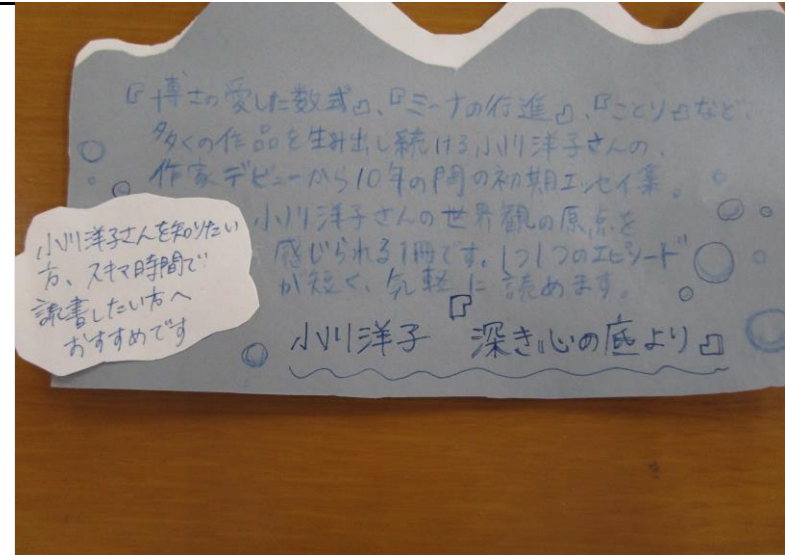 『博士の愛した数式』、『ミーナの行進』、『ことり』など、
多くの作品を生み出し続ける小川洋子さんの、
作家デビューから10年の間の初期エッセイ集。
小川洋子さんの世界観の原点を
感じられる1冊です。1つ1つのエピソード
が短く、気軽に読めます。
小川洋子 『深き心の底より』
小川洋子さんを知りたい
方、スキマ時間で
読書したい方へ
おすすめです